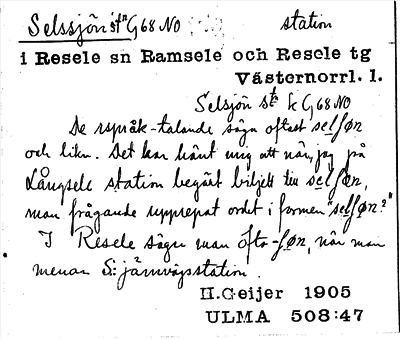 Selssjön stn G68 NO station
i Resele sn Ramsele och Resele tg
Västernorrl. l.
Selsjön stn k G68 NO
De rspråk-talande säga oftast selfön
och likn. Det har hänt mig att när jag på
Långsele station begärt biljett till selföen,
man frågande upprepat ordet i formen "selføn?"
I Resele säger man ofta -føn, när man
menar S: järnvägsstation.
H.Geijer 1905
ULMA 508:47